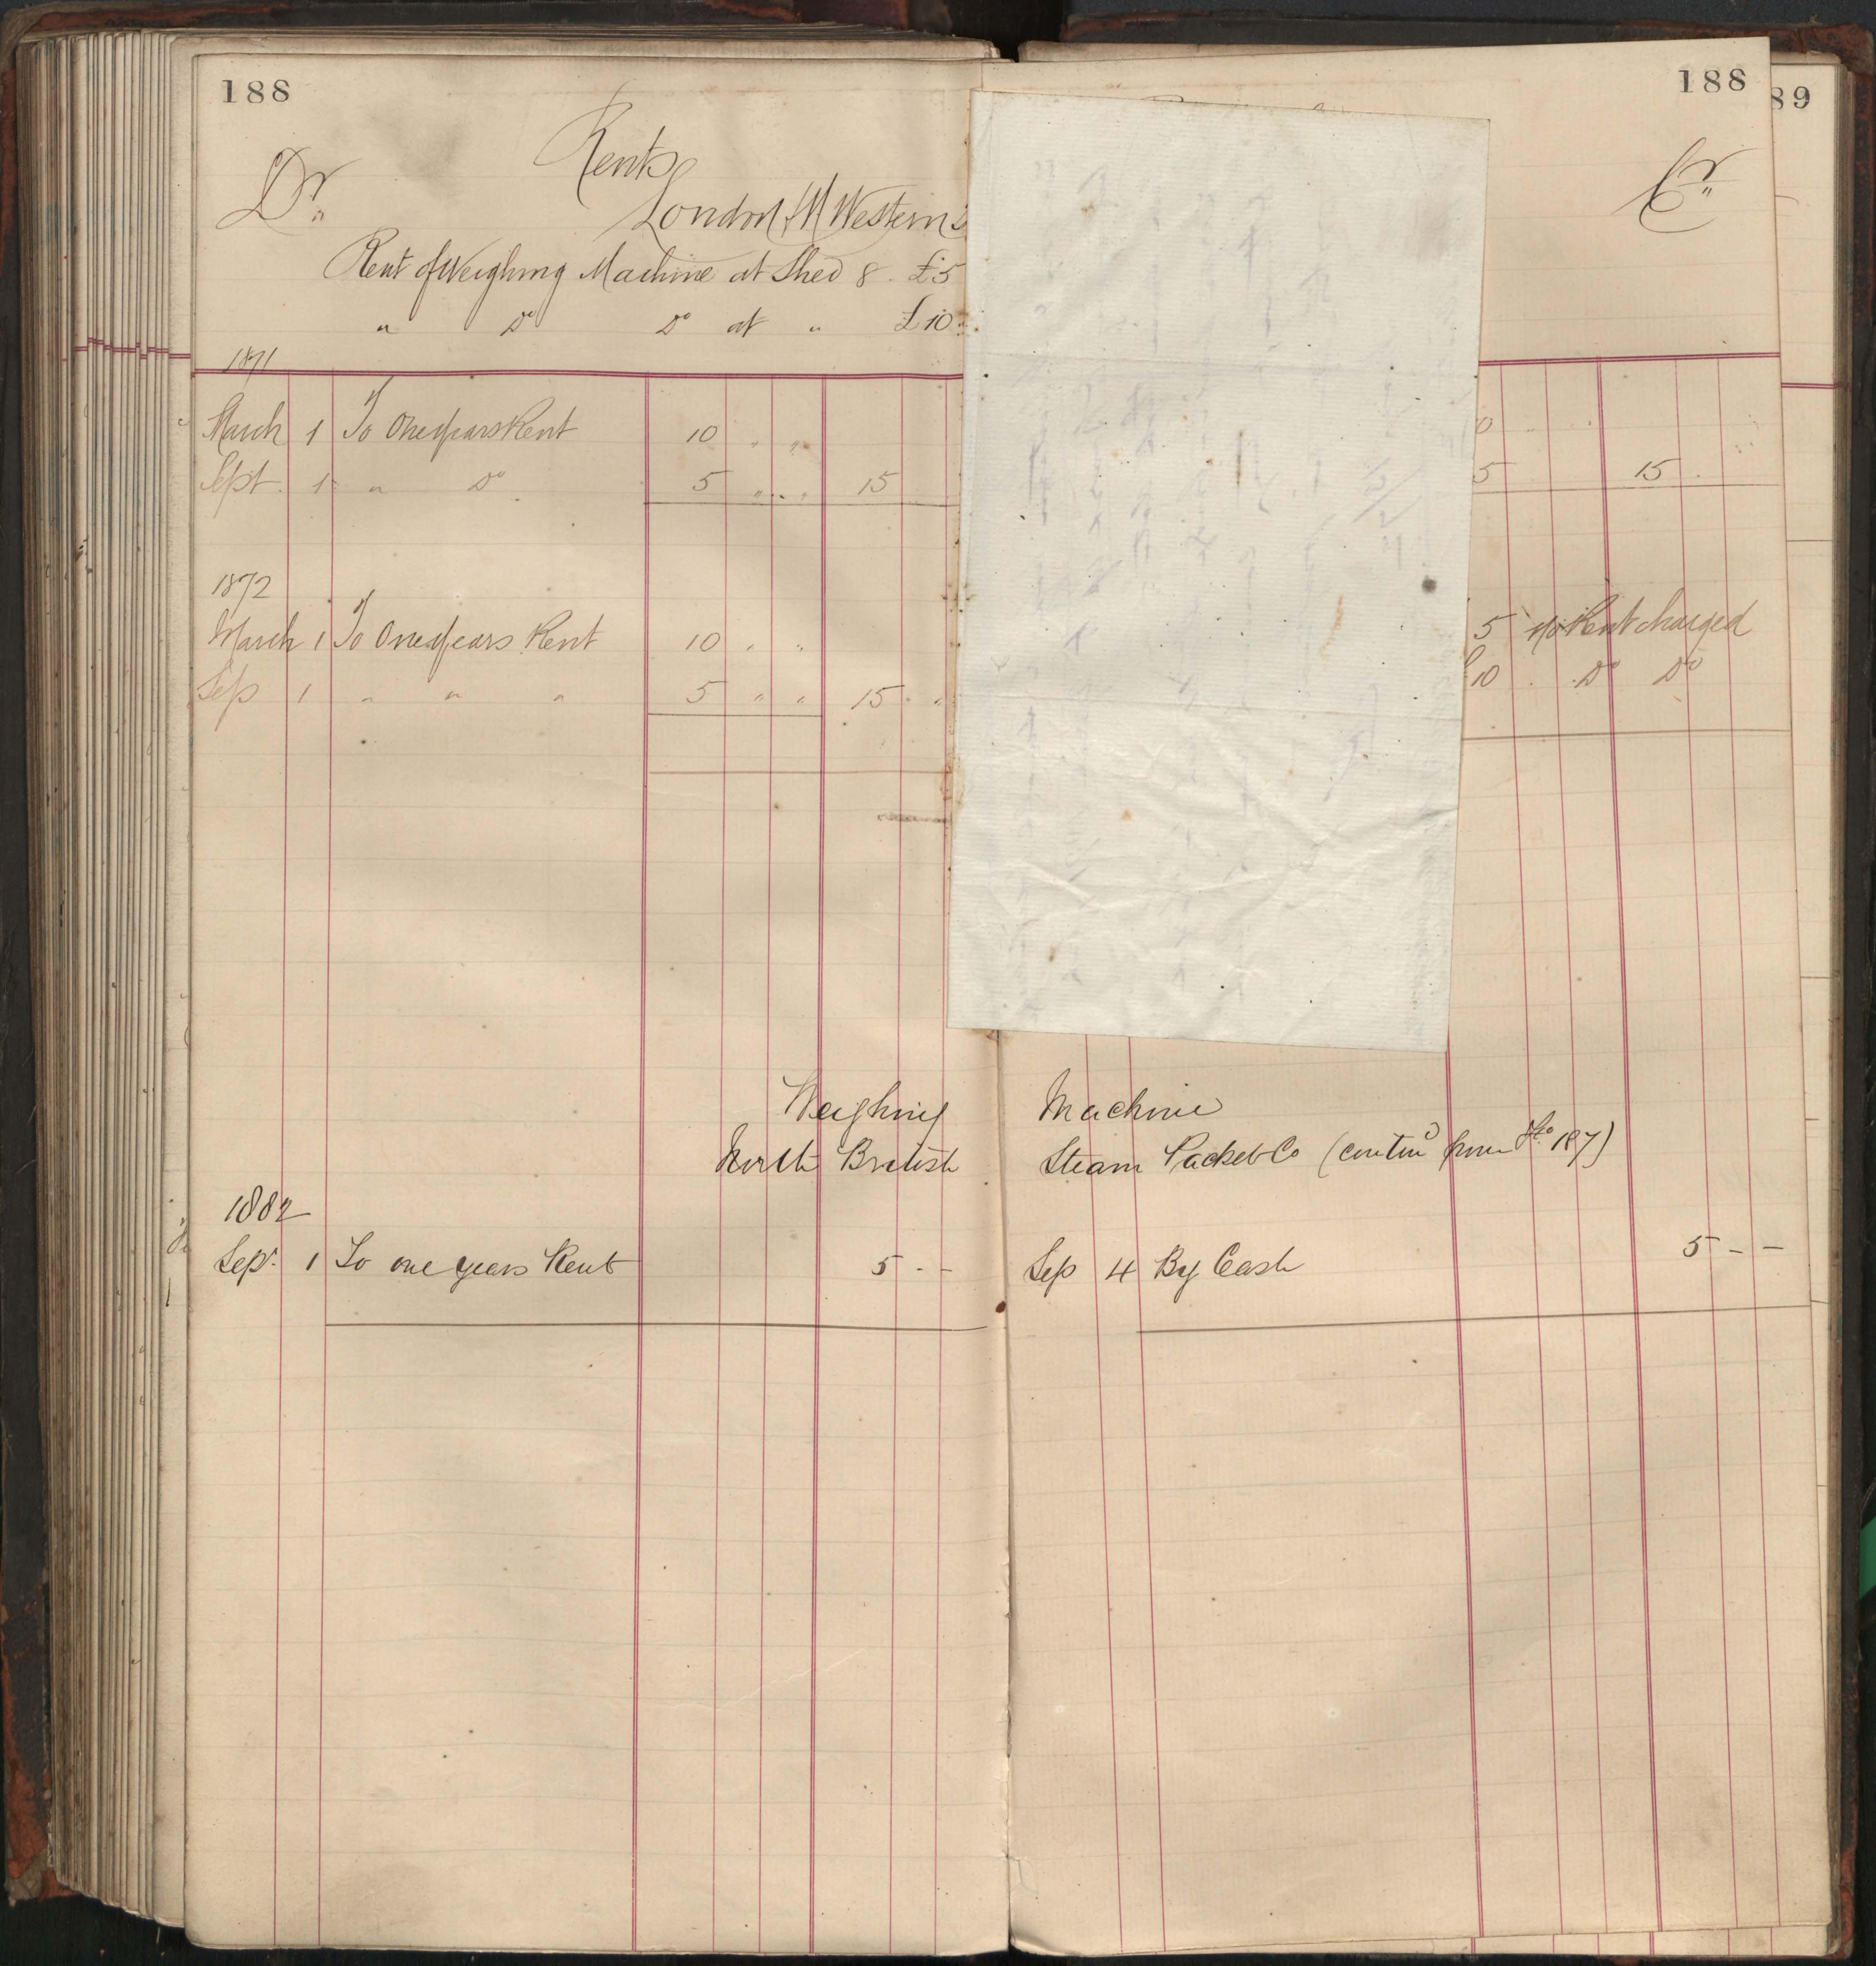 188
188
89
Rents
Dr
Cr
London & N Western
Rent of Weighing Machine at Shed 8 . £5
" Do Do at " £10
1871
March 1 To One years Rent 10 " "
0 " "
Sept. 1 " Do 5 " " 15
5 15
1872
March 1 To One years Rent 10 " "
5 no Rent charged
Sep 1 " " " 5 " " 15 " "
10 . Do Do
Weighing Machine
North British Steam Packet Co (contind from Fo 187)
1882
Sepr. 1 To one years Rent 5 - -
Sep 4 By Cash 5 - -